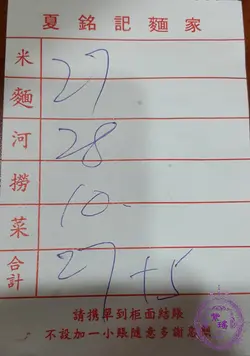 夏銘記麵家
米
麵 27
河 28
撈
菜 10-
合計 27+5
請携單到柜面結賬
不設加一小賬隨意多謝惠顧